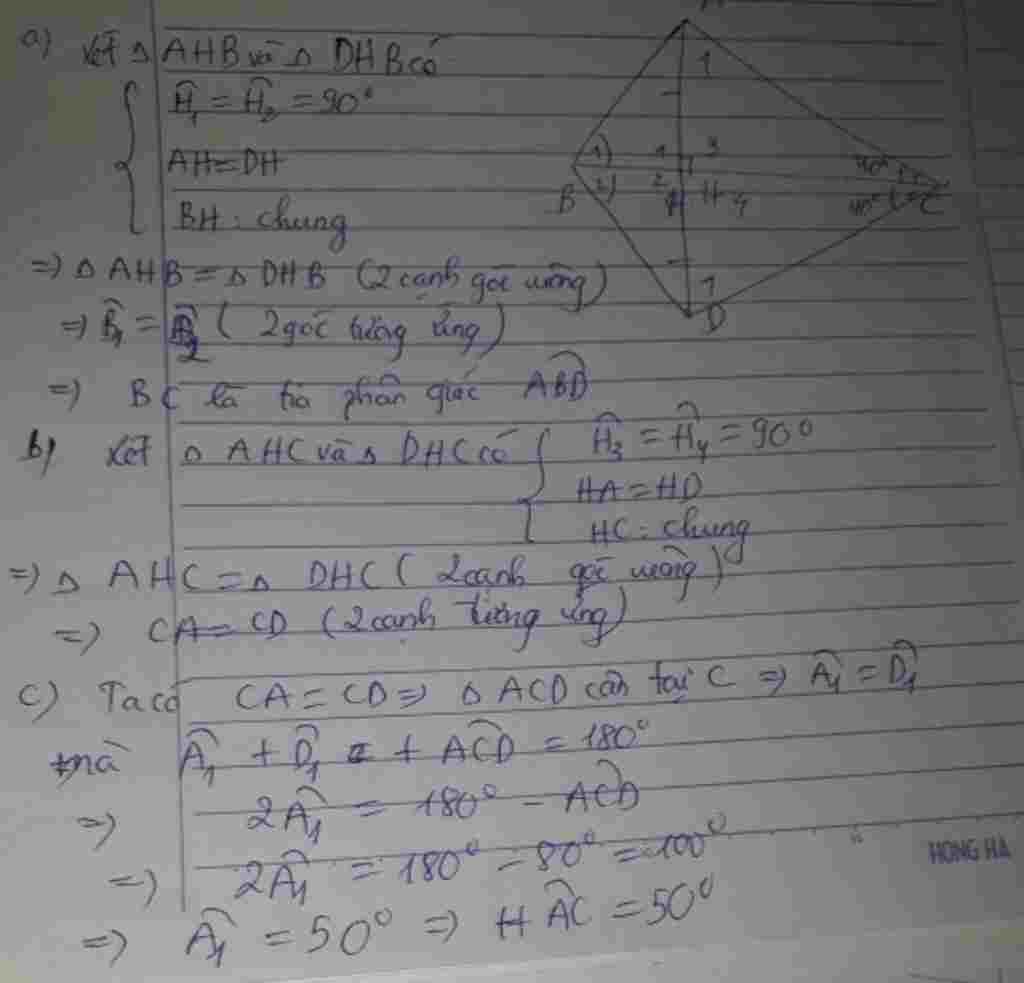 a) Xét Δ AHB và Δ DHB có
Ĥ₁ = Ĥ₂ = 90°
AH = DH
BH : chung
=> Δ AHB = Δ DHB (2 cạnh góc vuông)
=> B̂₁ = B̂₂ (2 góc tương ứng)
=> BC là tia phân giác ABD̂
b) Xét Δ AHC và Δ DHC có Ĥ₃ = Ĥ₄ = 90°
HA = HD
HC : chung
=> Δ AHC = Δ DHC (2 cạnh góc vuông)
=> CA = CD (2 cạnh tương ứng)
c) Ta có CA = CD => Δ ACD cân tại C => Â₁ = D̂₁
mà Â₁ + D̂₁ + ACD̂ = 180°
=> 2Â₁ = 180° - ACD̂
=> 2Â₁ = 180° - 80° = 100°
=> Â₁ = 50° => HÂC = 50°
1
1) 1 3
40°
B 2) 2 H 4 40° C
1
D
HONG HA